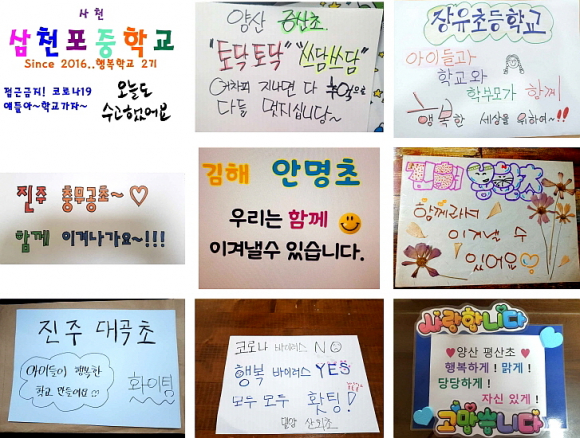 사천
삼천포중학교
Since 2016..행복학교 2기
접근금지! 코로나19
얘들아~학교가자~
오늘도
수고했어요
양산 중산초.
"토닥토닥" "쓰담쓰담"
어차피 지나면 다 추억으로
다들 멋지십니다~
장유초등학교
아이들과
학교와
학부모가 함께
행복한 세상을 위하여~!!
진주 충무공초~♡
함께 이겨나가요~!!!
김해 안명초
우리는 함께
이겨낼수 있습니다.
함께라서
이겨낼 수
있어요♡
진주 대곡초
아이들이 행복한
학교 만들어요!!!
화이팅
코로나 바이러스 NO
행복 바이러스 YES
모두 모두 홧팅!
밀양 산외초
사랑합니다
♥양산 평산초♥
행복하게! 맑게!
당당하게!
자신 있게!
고맙습니다